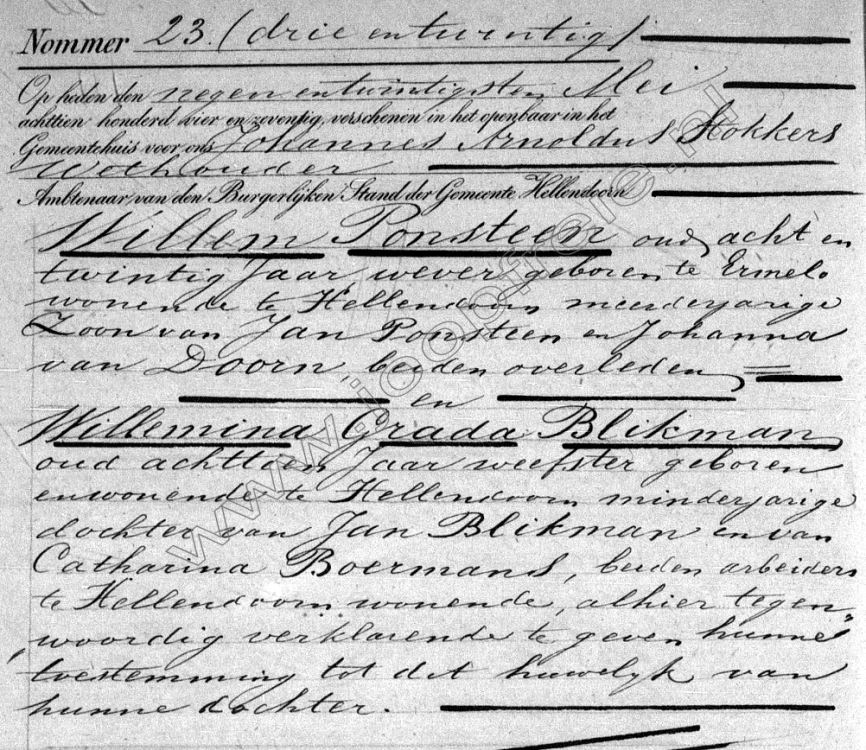 Nommer 23. (drie entwintig)
Op heden den negen entwintigsten Mei
achttien honderd vier en zeventig, verschenen in het openbaar in het
Gemeentehuis voor ons Johannes Arnoldus Stokkers
Wethouder
Ambtenaar van den Burgerlijken Stand der Gemeente Hellendoorn
Willem Ponsteen oud acht en
twintig Jaar wever geboren te Ermelo
wonende te Hellendoorn meerderjarige
Zoon van Jan Ponsteen en Johanna
van Doorn, beiden overleden
en
Willemina Grada Blikman
oud achttien Jaar weefster geboren
enwonende te Hellendoorn minderjarige
dochter van Jan Blikman en van
Catharina Boermans, beiden arbeiders
te Hellendoorn wonende, alhier tegen
woordig verklarende te geven hunne
toestemming tot dit huwelyk van
hunne dochter.
www.jooprele.nl